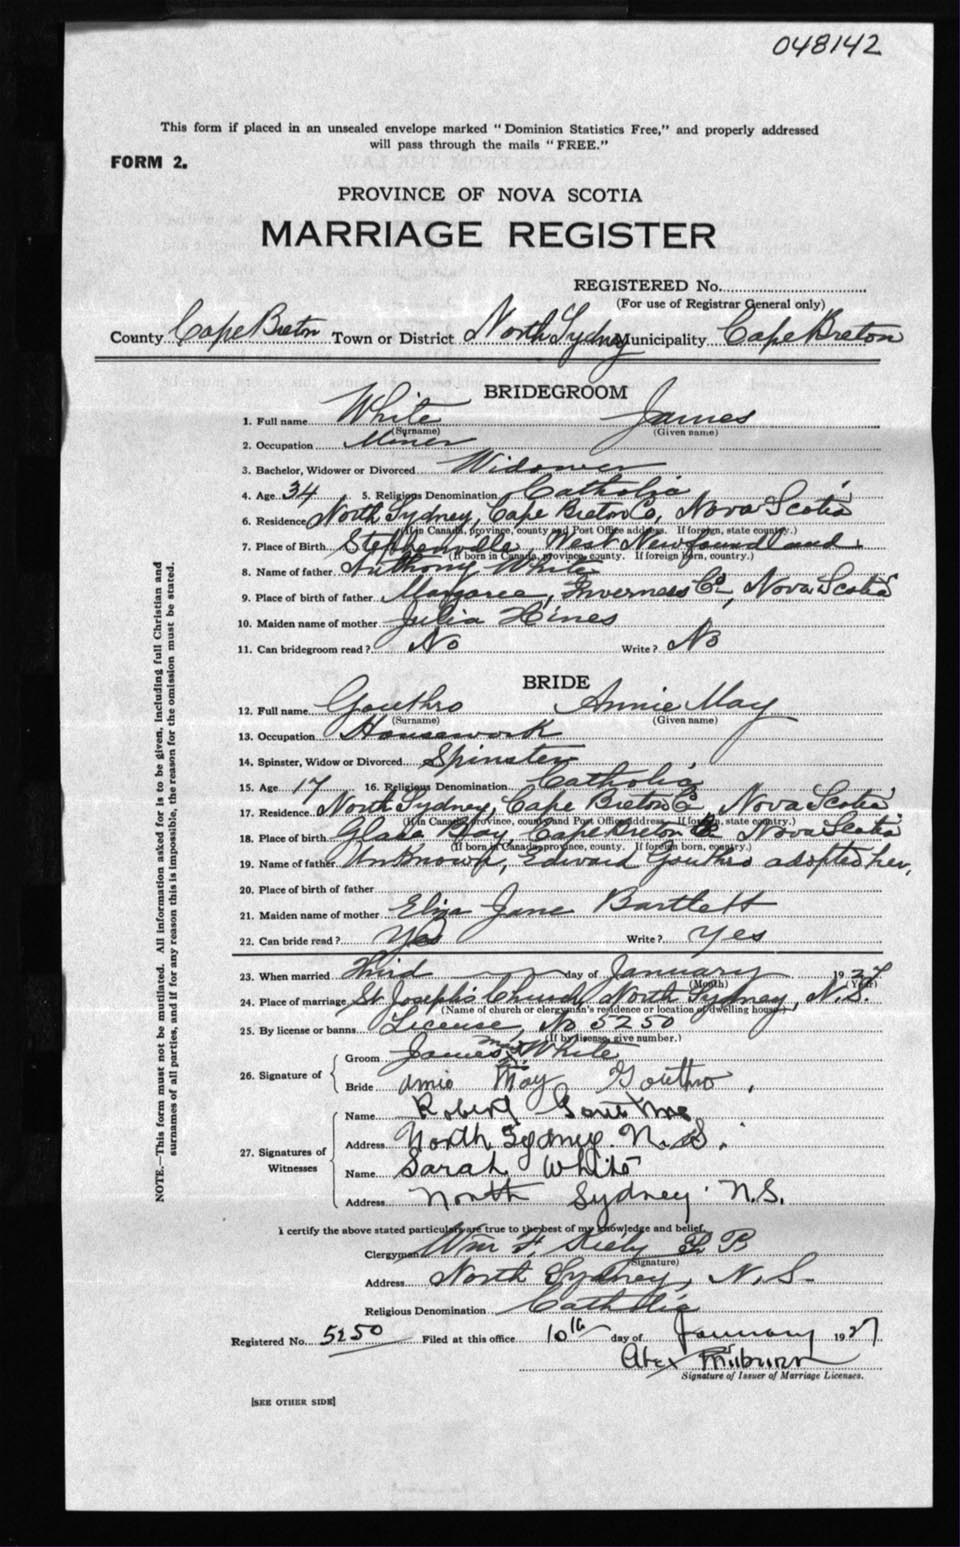 048142
This form if placed in an unsealed envelope marked "Dominion Statistics Free," and properly addressed
will pass through the mails "FREE."
FORM 2.
PROVINCE OF NOVA SCOTIA
MARRIAGE REGISTER
REGISTERED No.
(For use of Registrar General only)
County Cape Breton Town or District North Sydney Municipality Cape Breton
BRIDEGROOM
1. Full name White James
(Surname) (Given name)
2. Occupation Miner
3. Bachelor, Widower or Divorced Widower
4. Age 34 5. Religious Denomination Catholic
6. Residence North Sydney, Cape Breton Co, Nova Scotia
(If in Canada, province, county and Post Office address. If foreign, state country.)
7. Place of Birth Stephenville, West Newfoundland
(If born in Canada, province, county. If foreign born, country.)
8. Name of father Anthony White
9. Place of birth of father Margaree, Inverness Co, Nova Scotia
10. Maiden name of mother Julia Hines
11. Can bridegroom read? No Write? No
BRIDE
12. Full name Gouthro Annie May
(Surname) (Given name)
13. Occupation Housework
14. Spinster, Widow or Divorced Spinster
15. Age 17 16. Religious Denomination Catholic
17. Residence North Sydney, Cape Breton Co, Nova Scotia
(If in Canada, province, county and Post Office address. If foreign, state country.)
18. Place of birth Glace Bay, Cape Breton Co Nova Scotia
(If born in Canada, province, county. If foreign born, country.)
19. Name of father Unknown, Edward Gouthro adopted her,
20. Place of birth of father
21. Maiden name of mother Eliza Jane Bartlett
22. Can bride read? Yes Write? Yes
23. When married Third day of January 1927
(Month) (Year)
24. Place of marriage St Joseph's Church, North Sydney, N.S.
(Name of church or clergyman's residence or location of dwelling house)
25. By license or banns License, No 5250
(If by license, give number.)
26. Signature of
Groom James White
Bride Annie May Gouthro
27. Signatures of Witnesses
Name Robert Gouthro
Address North Sydney N.S.
Name Sarah White
Address North Sydney N.S.
I certify the above stated particulars are true to the best of my knowledge and belief.
Clergyman Wm F. Kiely P. P.
(Signature)
Address North Sydney, N.S.
Religious Denomination Catholic
Registered No. 5250 Filed at this office 10th day of January 1927
Alex Milburn
Signature of Issuer of Marriage Licenses.
[SEE OTHER SIDE]
NOTE.—This form must not be mutilated. All information asked for is to be given, including full Christian and
surnames of all parties, and if for any reason this is impossible, the reason for the omission must be stated.